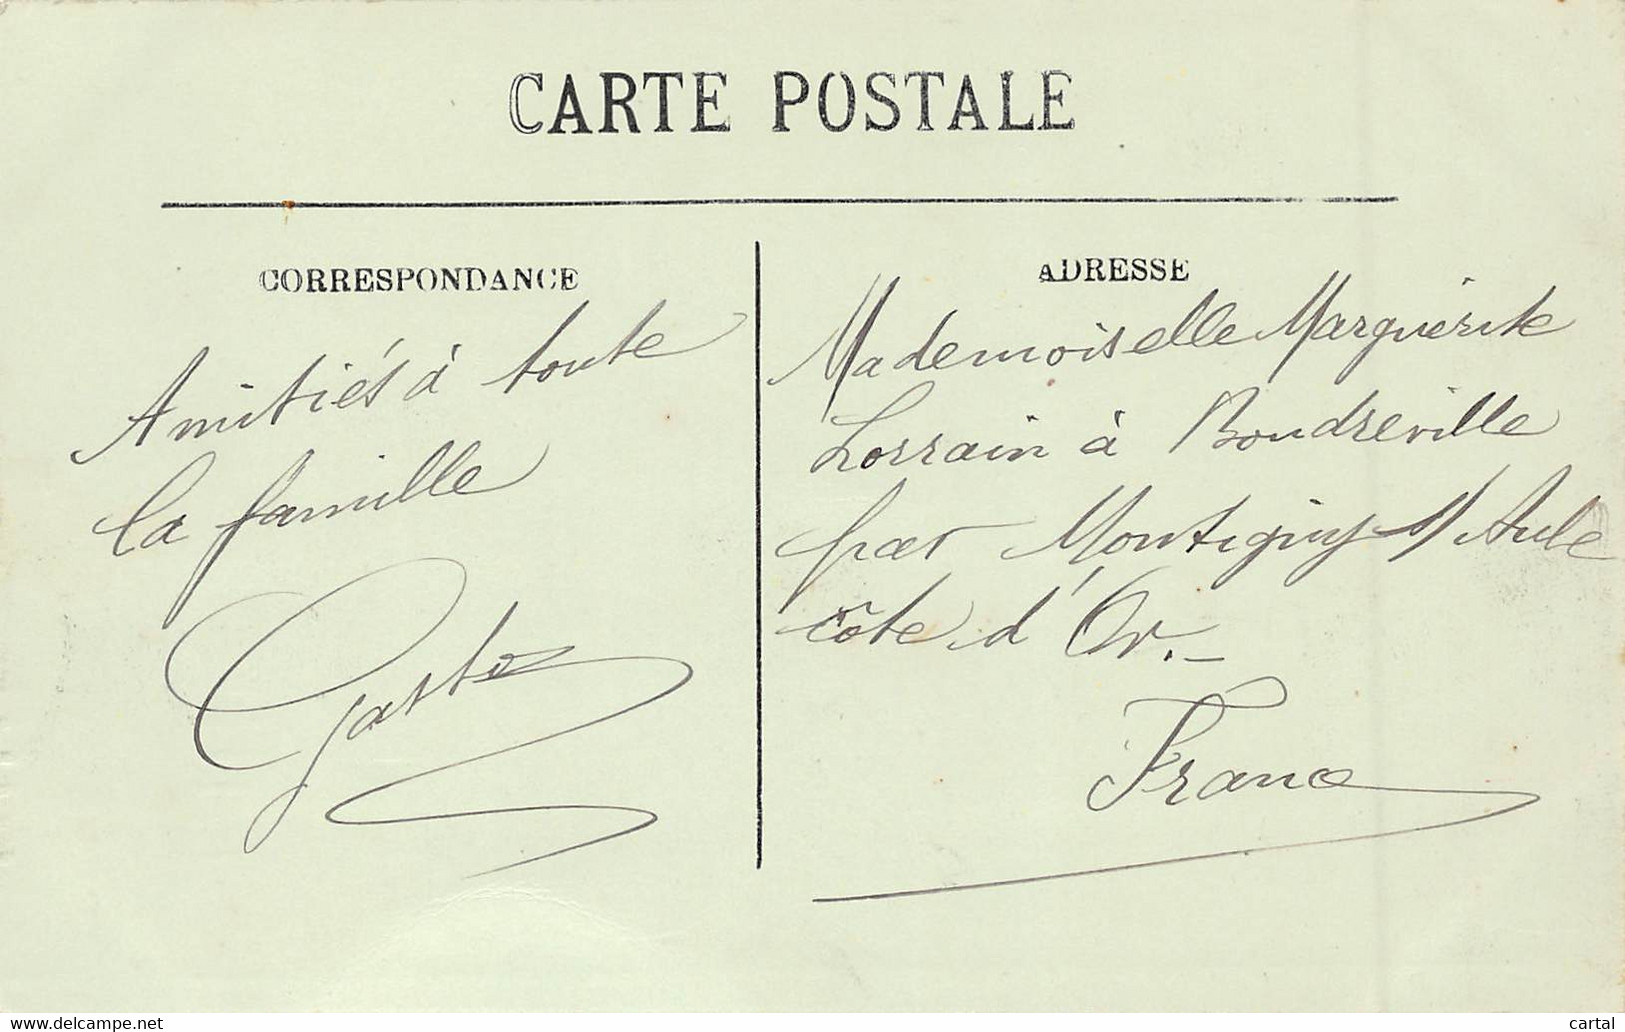 CARTE POSTALE
CORRESPONDANCE
Amitiés à toute
la famille
Gaston
ADRESSE
Mademoiselle Marguerite
Lorrain à Boudreville
par Montigny s/ Aube
Côte d'Or.-
France
www.delcampe.net
cartal